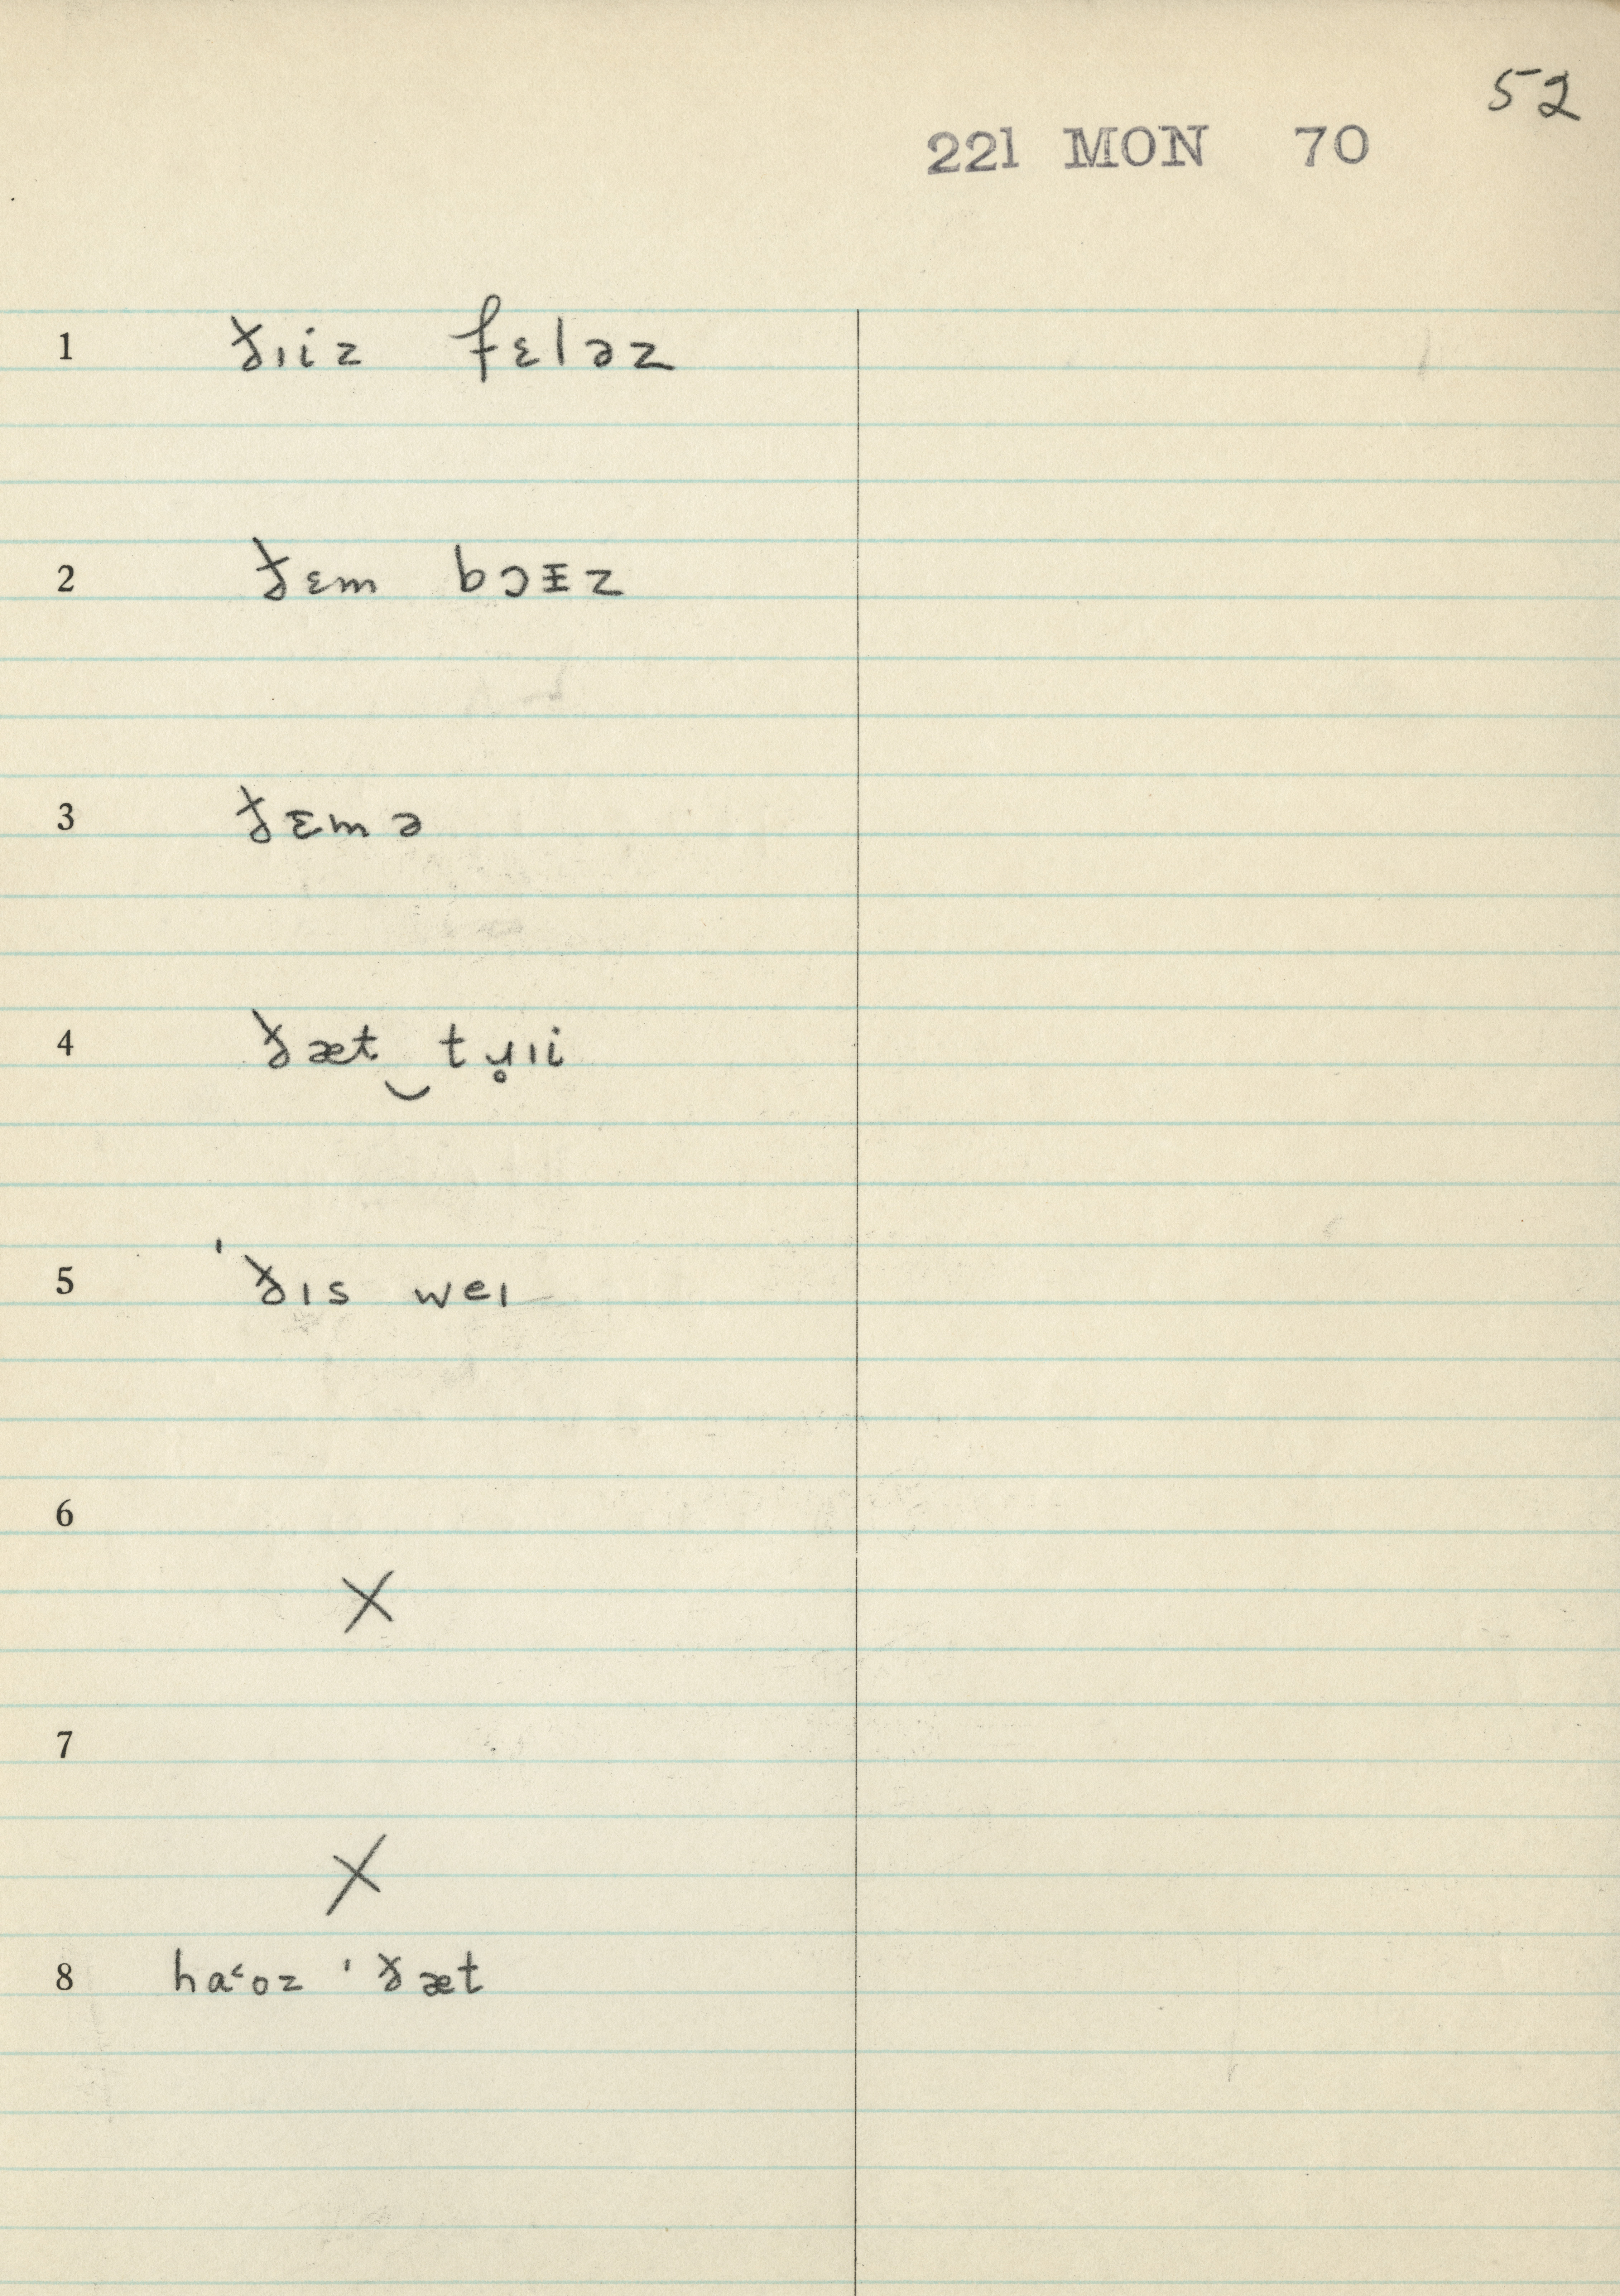 52
221 MON 70
1 ðɪiz fɛləz
2 ðɛm bɔɪz
3 ðɛmə
4 ðæt‿tɹ̥ɪi
5 ˈðɪs weɪ
6
X
7
X
8 haˑoz ˈðæt